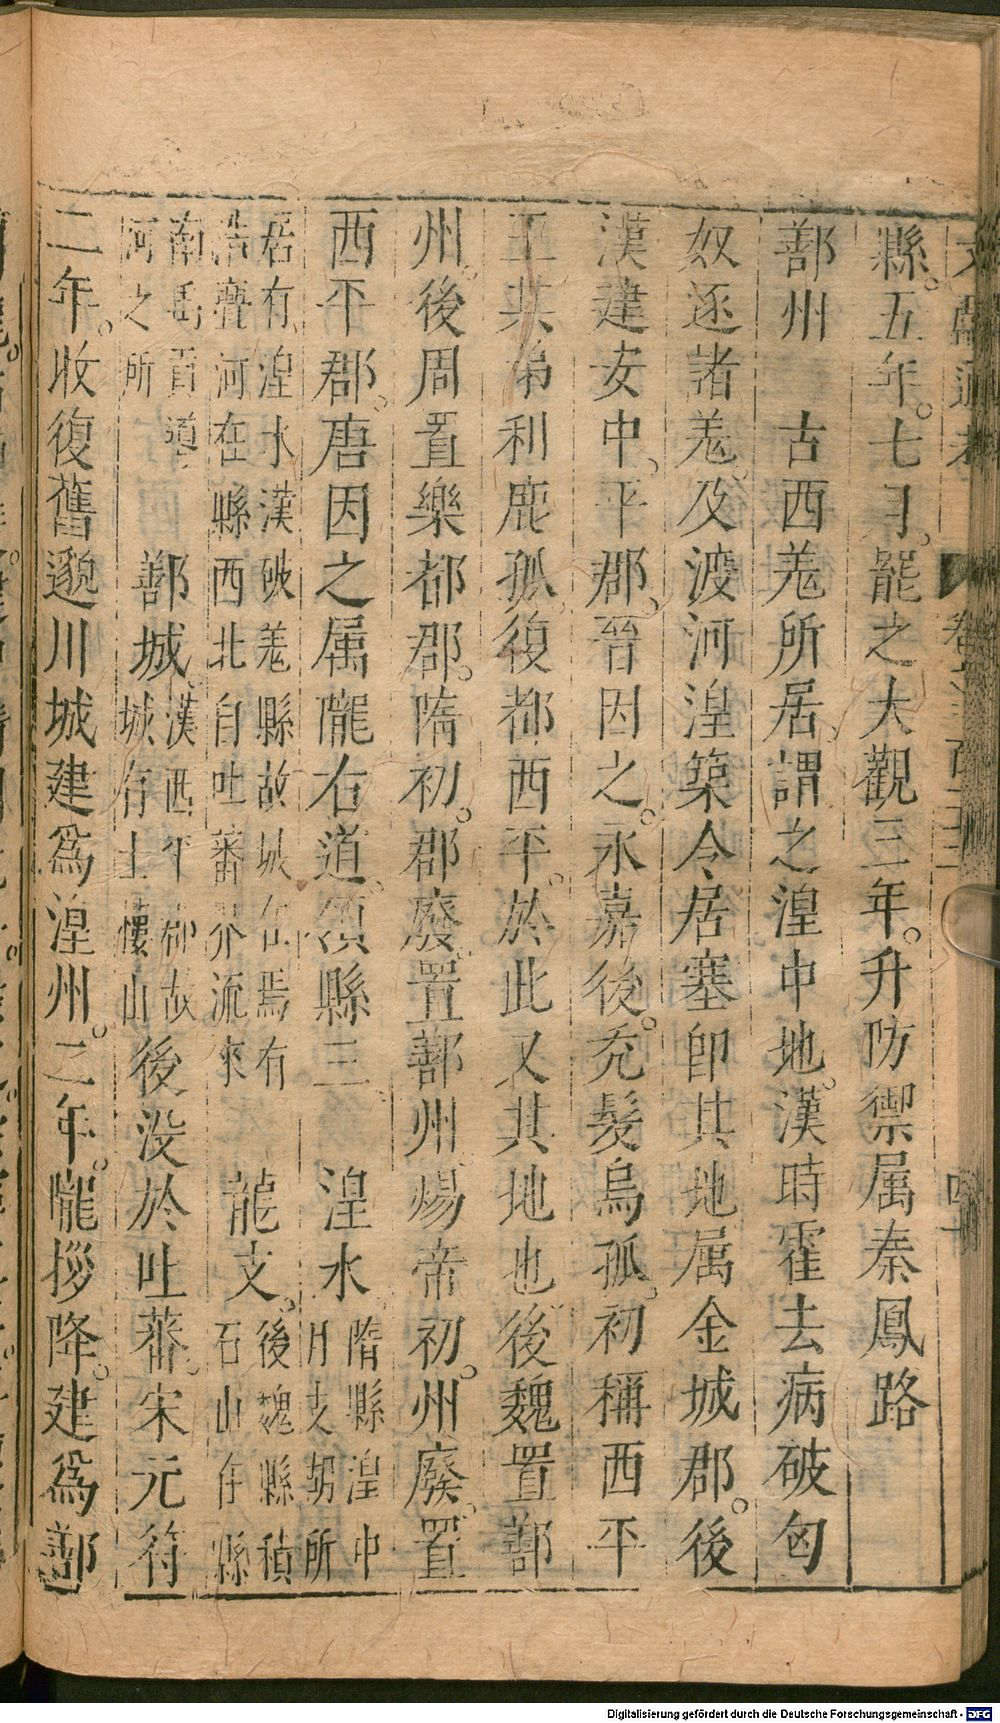 縣。五年。七月。罷之大觀三年。升防禦属秦鳳路
鄯州　古西羗所居。謂之湟中地。漢時霍去病破匈
奴逐諸羗。及渡河湟築令居塞即其地属金城郡。後
漢建安中。平郡。晉因之。永嘉後。禿髮烏孤。初稱西平
王其弟利鹿孤。復都西平。於此又其地也後魏置鄯
州。後周置樂都郡。隋初。郡廢。置鄯州煬帝初。州廢。置
西平郡。唐因之属隴右道。領縣三　湟水　隋縣湟中月支胡所
居有湟水漢破羗縣故城在焉有浩亹河在縣西北自吐蕃界流來　龍支。後魏縣積石山在縣
南禹貢導河之所　鄯城。漢西平郡故城有土樓山　後没於吐蕃。宋元符
二年。收復舊邈川城建爲湟州。二年。隴拶降。建爲鄯
文獻通考
四十
Digitalisierung gefördert durch die Deutsche Forschungsgemeinschaft - DFG